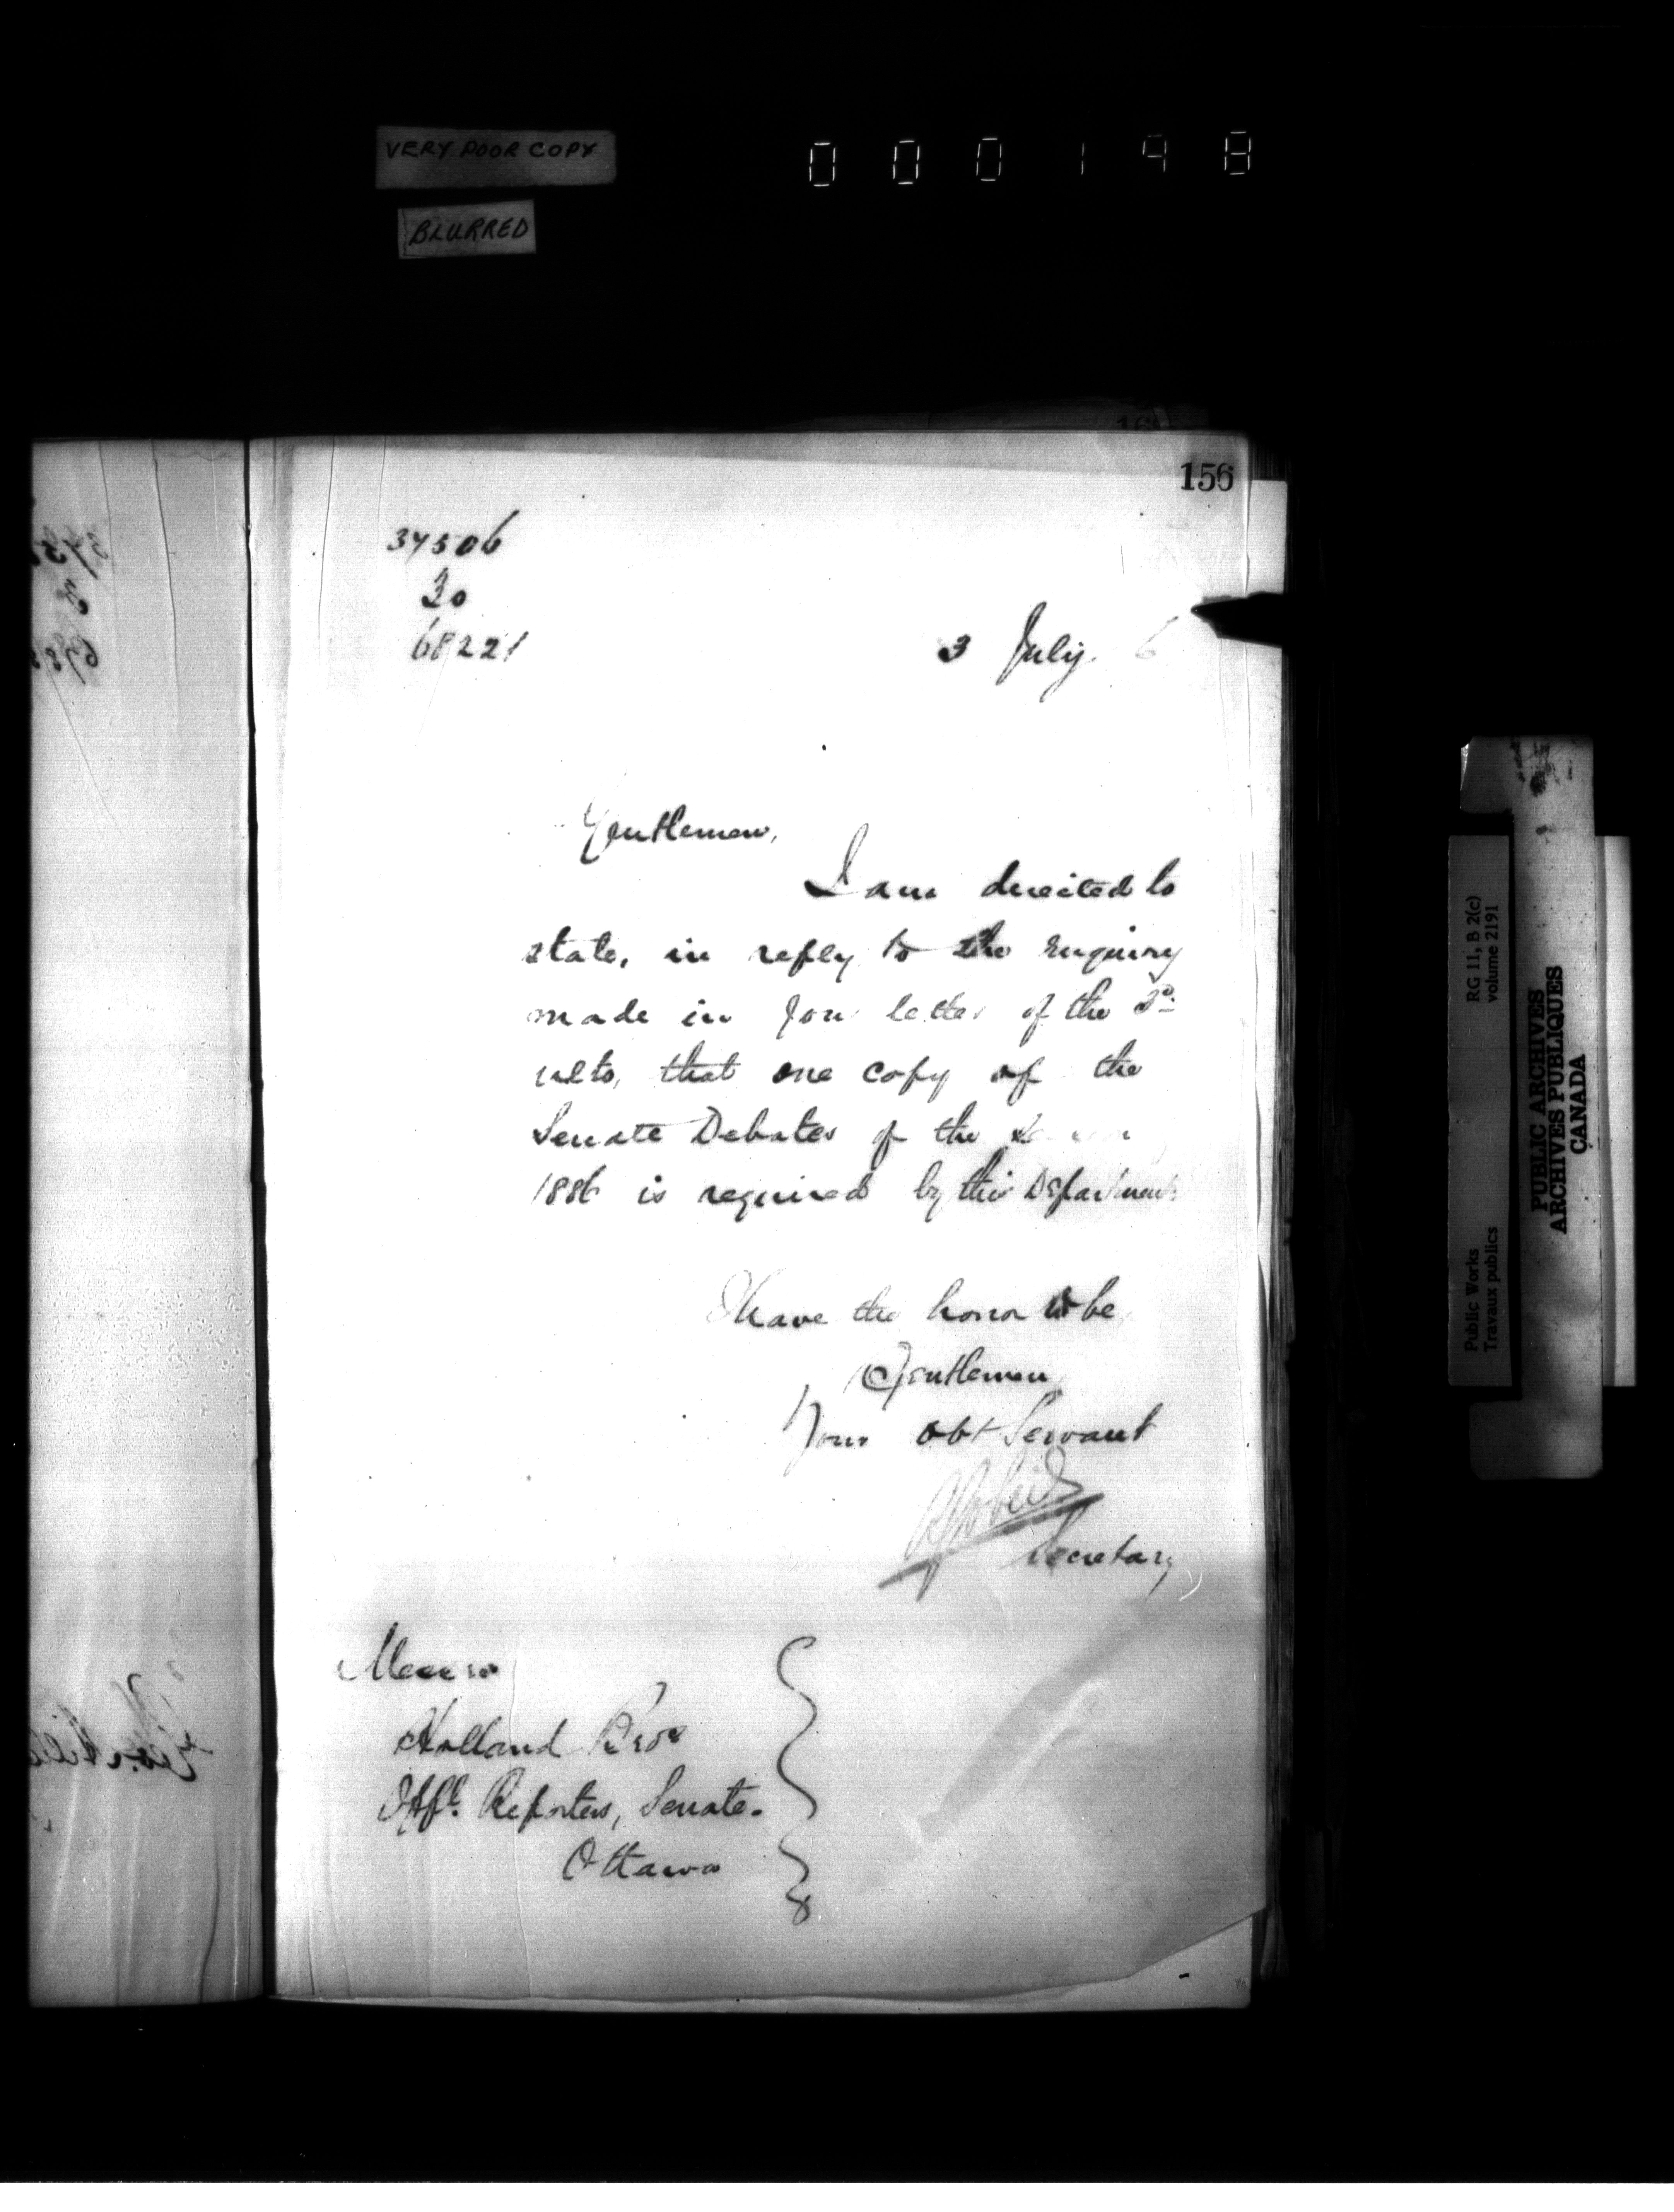 VERY POOR COPY
BLURRED
000198
156
37506
30
68221
3 July 6
Gentlemen,
I am directed to
state, in reply to the enquiry
made in your letter of the
ulto, that one copy of the
Senate Debates of the
1886 is required by this Department
I have the honor to be
Gentlemen
Your obt Servant
Secretary
Messrs
Holland Bros
Offl. Reporters, Senate.
Ottawa
Public Works
Travaux publics
RG 11, B 2(c)
volume 2191
PUBLIC ARCHIVES
ARCHIVES PUBLIQUES
CANADA